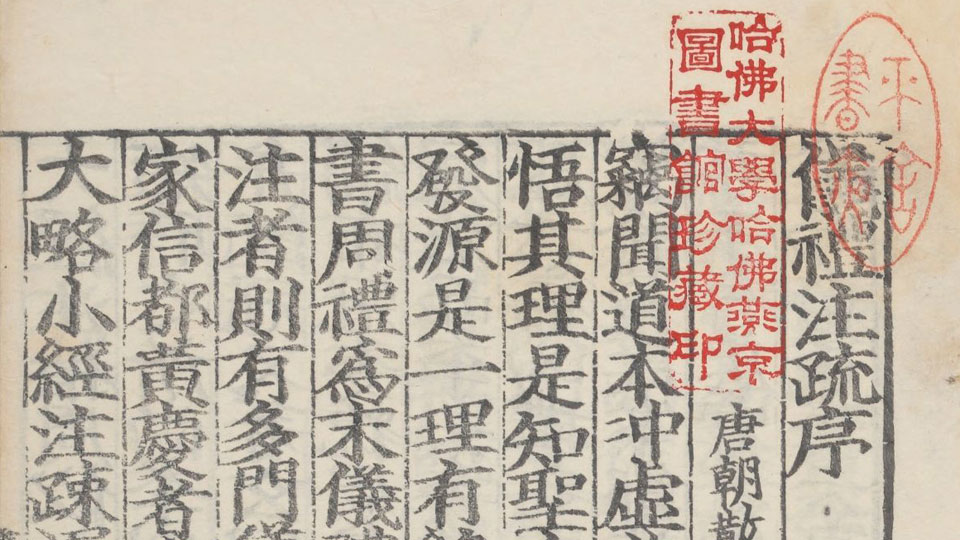 儀禮注疏序
唐朝散
竊聞道本沖虛
悟其理是知聖
發源是一理有
書周禮爲末儀
注者則有多門
家信都黃慶者
大略小經注疎
哈佛大學哈佛燕京
圖書館珍藏印